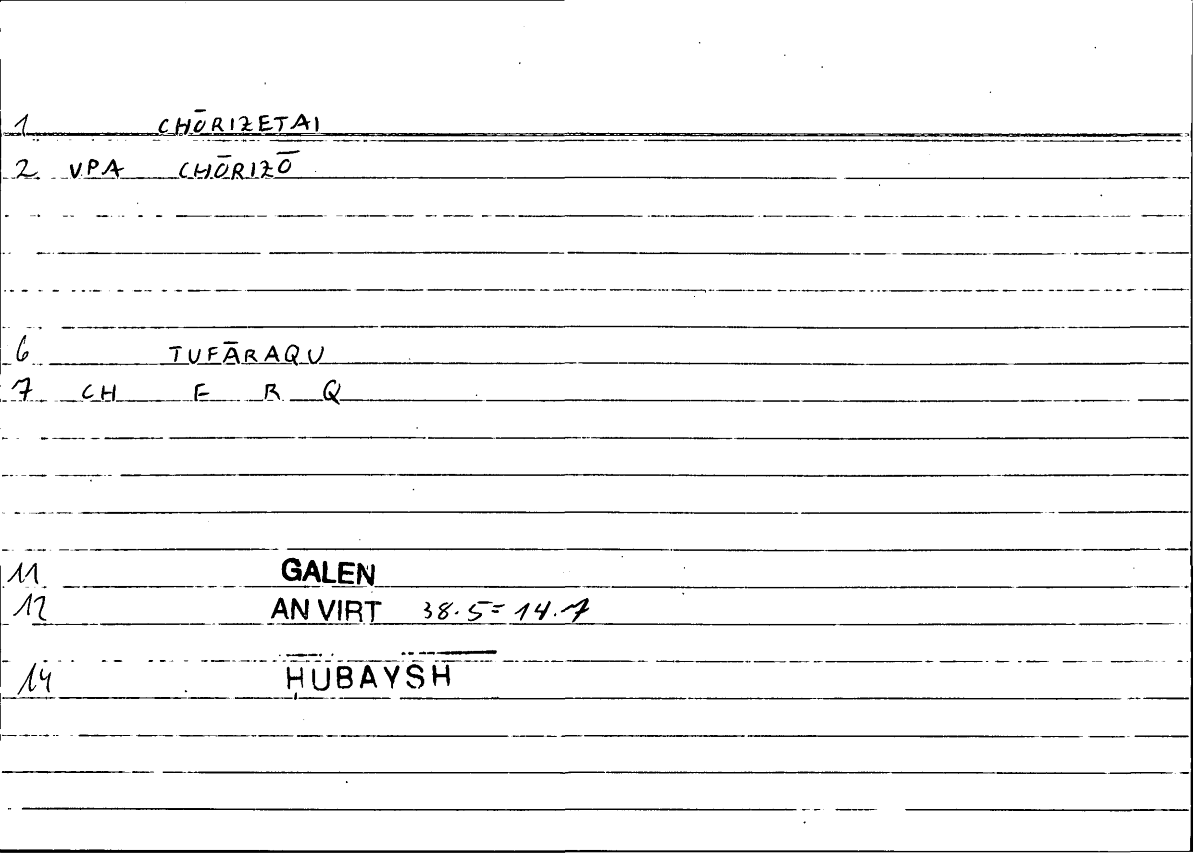 1 CHŌRIZETAI
2 VPA CHŌRIZŌ
6 TUFĀRAQU
7 CH F R Q
11 GALEN
12 AN VIRT 38.5=14.7
14 ḤUBAYSH